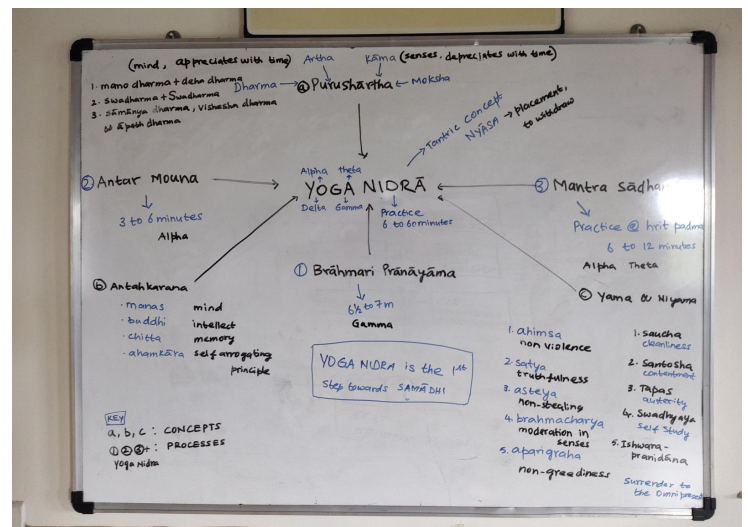 (mind, appreciates with time) Artha Kāma (senses. depreciates with time)
1. mano dharma + deha dharma
2. swadharma + Swadharma
3. sāmānya dharma, vishesha dharma
& āpath dharma
Dharma → ⓐ Purushārtha ← Moksha
Tantric concept
NYĀSA → placement,
to withdraw
② Antar Mouna
3 to 6 minutes
Alpha
Alpha Theta
YOGA NIDRĀ
Delta Gamma
Practice
6 to 60 minutes
③ Mantra Sādha
Practice @ hrit padma
6 to 12 minutes
Alpha Theta
ⓑ Antahkarana
· manas mind
· buddhi intellect
· chitta memory
· ahamkāra self arrogating
principle
① Brāhmari Prānāyāma
6½ to 7m
Gamma
YOGA NIDRA is the 1st
Step towards SAMĀDHI
ⓒ Yama & Niyama
1. ahimsa
non violence
2. satya
truthfulness
3. asteya
non-stealing
4. brahmacharya
moderation in
senses
5. aparigraha
non-greediness
1. saucha
cleanliness
2. Santosha
contentment
3. Tapas
austerity
4. Swadhyaya
Self Study
5. Ishwara-
pranidāna
Surrender to
the Omnipresent
KEY
a, b, c : CONCEPTS
①②③+ : PROCESSES
Yoga Nidra